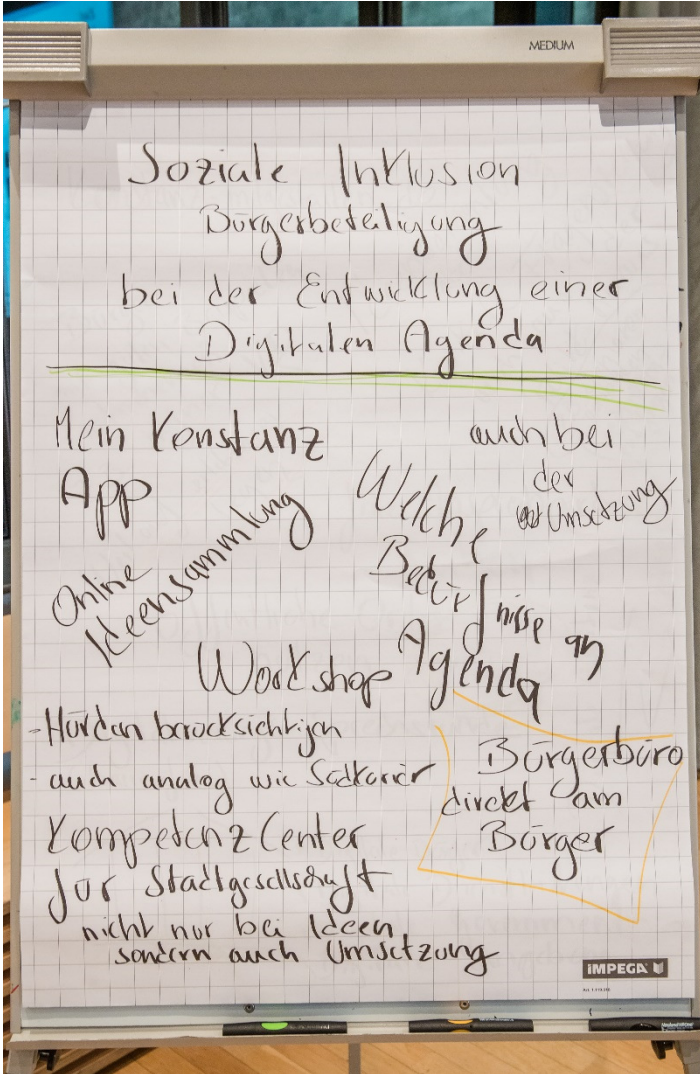 MEDIUM
Soziale Inklusion
Bürgerbeteiligung
bei der Entwicklung einer
Digitalen Agenda
Mein Konstanz
App
auch bei
der
Umsetzung
Online
Ideensammlung
Welche
Bedürfnisse an
Agenda
Workshop
- Hürden berücksichtigen
- auch analog wie Südkurier
Kompetenz Center
für Stadtgesellschaft
nicht nur bei Ideen
sondern auch Umsetzung
Bürgerbüro
direkt am
Bürger
IMPEGA